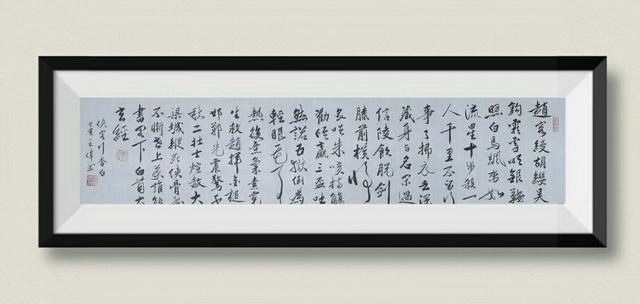 趙客縵胡纓吴
鉤霜雪明銀鞍
照白馬颯沓如
流星十步殺一
人千里不留行
事了拂衣去深
藏身与名閑過
信陵飲脱剑
膝前横將
炙啖朱亥持觴
勸侯嬴三盃吐
然諾五嶽倒為
輕眼花耳
熱後意氣素霓
生救趙揮金槌
邯鄲先震驚千
秋二壮士烜赫大
梁城縱死侠骨香
不慚世上英誰能
書閣下白首太
玄經
侠客行李白